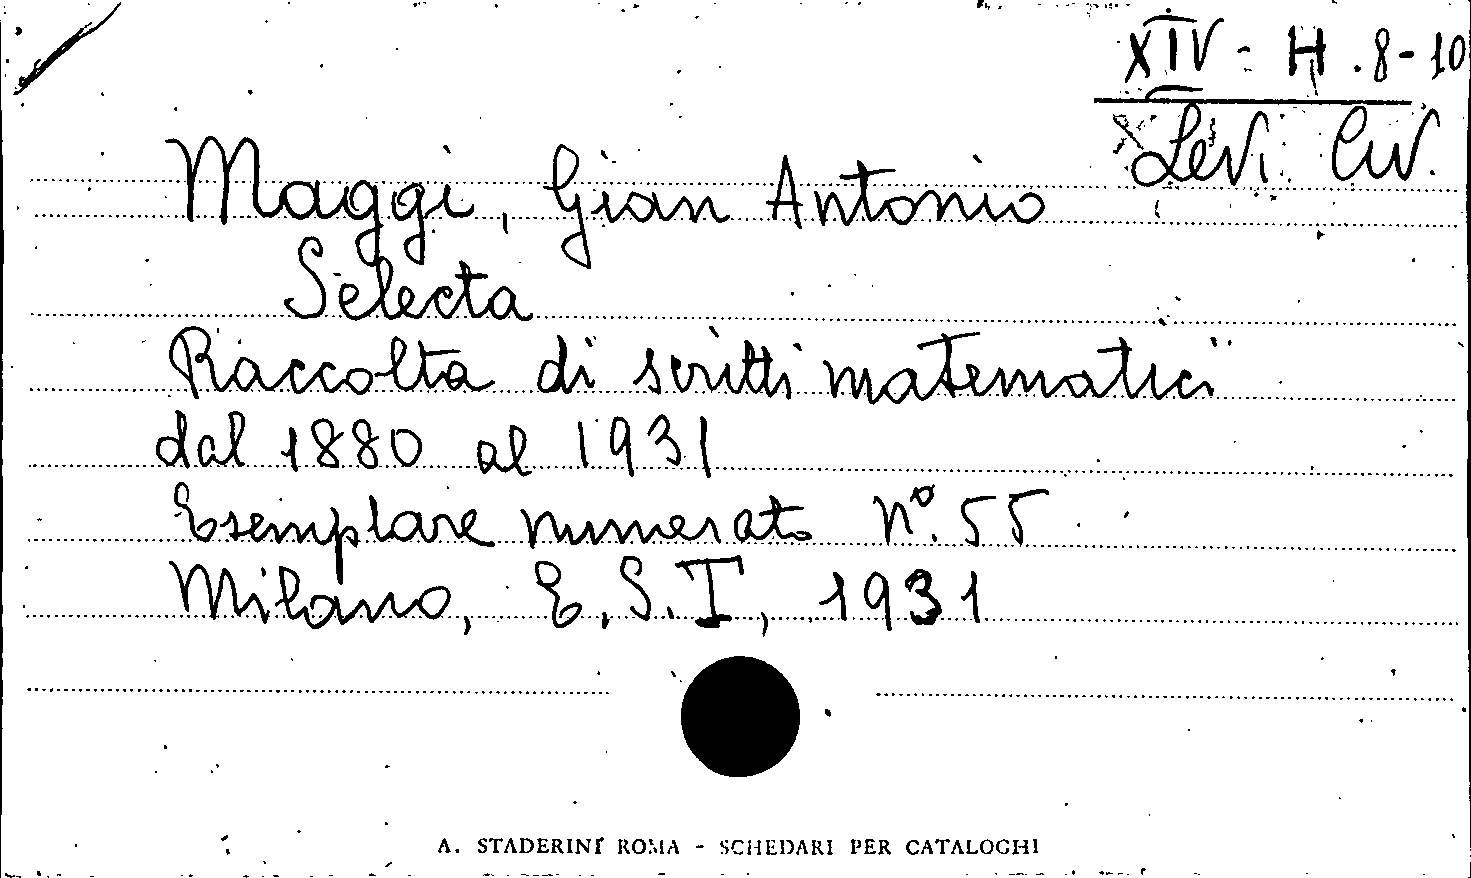 XIV - H. 8-10
Levi Civ.
Maggi, Gian Antonio
Selecta
Raccolta di scritti matematici
dal 1880 al 1931
Esemplare numerato nº. 55
Milano, E.S.I, 1931
A. STADERINI ROMA - SCHEDARI PER CATALOGHI